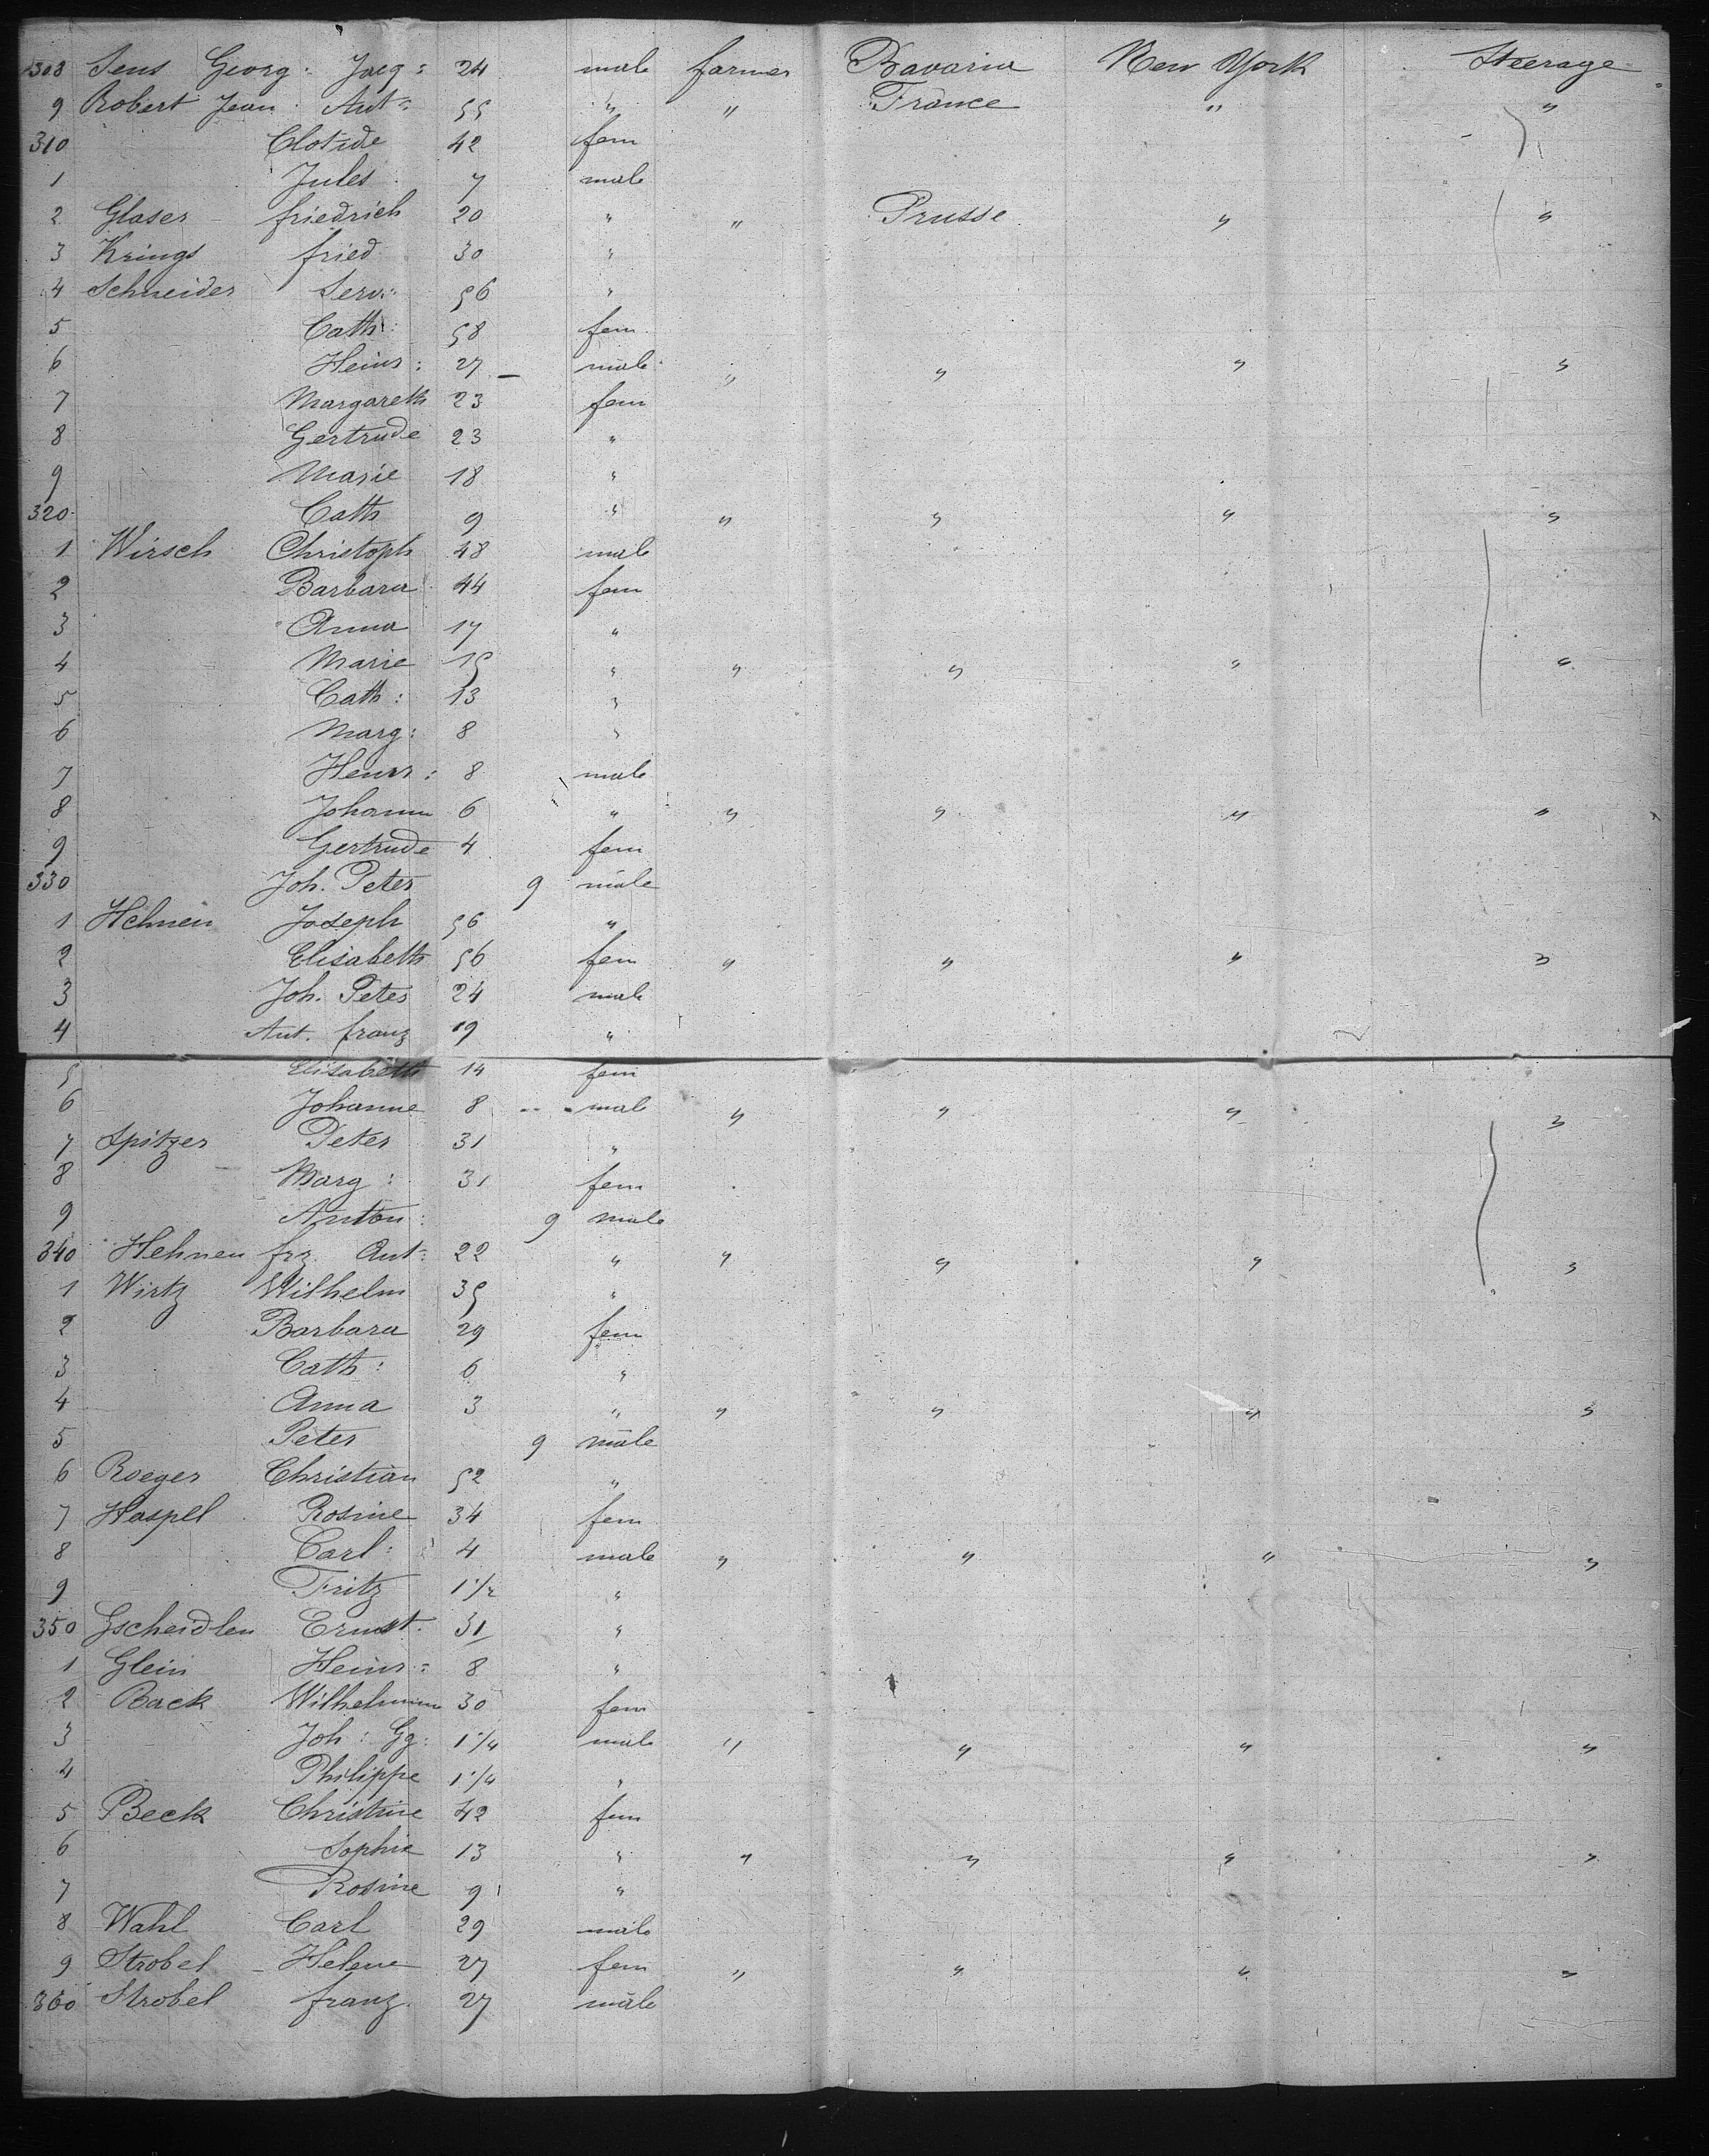 308 Sens Georg: Jacq: 24 male farmer Bavaria New York Steerage
9 Robert Jean Ant: 55 " " France " "
310 Clotide 42 fem
1 Jules 7 male
2 Glaser friedrich 20 " " Prusse " "
3 Krings fried 30 "
4 Schneider Serv: 56 "
5 Cath: 58 fem
6 Heinr: 27 male " " " "
7 Margareth 23 fem
8 Gertrude 23 "
9 Marie 18 "
320 Cath 9 " " " " "
1 Wirsch Christoph 48 male
2 Barbara 44 fem
3 Anna 17 "
4 Marie 15 " " " " "
5 Cath: 13 "
6 Marg: 8 "
7 Heinr: 8 male
8 Johann 6 " " " " "
9 Gertrude 4 fem
330 Joh. Peter 9 male
1 Hehnen Joseph 56 "
2 Elisabeth 56 fem " " " "
3 Joh. Peter 24 male
4 Ant. franz 19 "
5 Elisabeth 14 fem
6 Johanne 8 male " " " "
7 Spitzer Peter 31 "
8 Marg: 31 fem
9 Anton: 9 male
340 Hehnen frz. Ant: 22 " " " " "
1 Wirtz Wilhelm 35 "
2 Barbara 29 fem
3 Cath: 6 "
4 Anna 3 " " " " "
5 Peter 9 male
6 Roeger Christian 52 "
7 Haspel Rosine 34 fem
8 Carl: 4 male " " " "
9 Fritz 1 1/2 "
350 Gscheidlen Ernst. 31 "
1 Glein Heinr: 8 "
2 Back Wilhelmine 30 fem
3 Joh: Gg: 1 1/4 male " " " "
4 Philippe 1 1/4 "
5 Beck Christine 42 fem
6 Sophie 13 " " " " "
7 Rosine 9 "
8 Wahl Carl 29 male
9 Strobel Helene 27 fem " " " "
360 Strobel franz. 27 male